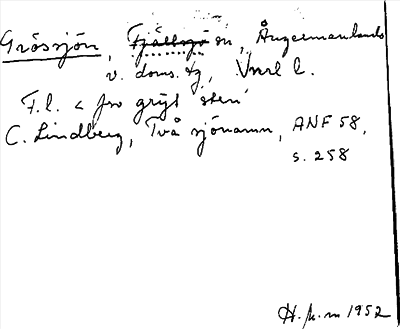 Grössjön, Fjällsjö sn, Ångermanlands
v. doms. tg, Vnrl l.
F.l. < fvn grýt 'sten'
C. Lindberg, Två sjönamn, ANF 58,
s. 258
H. p. m 1952